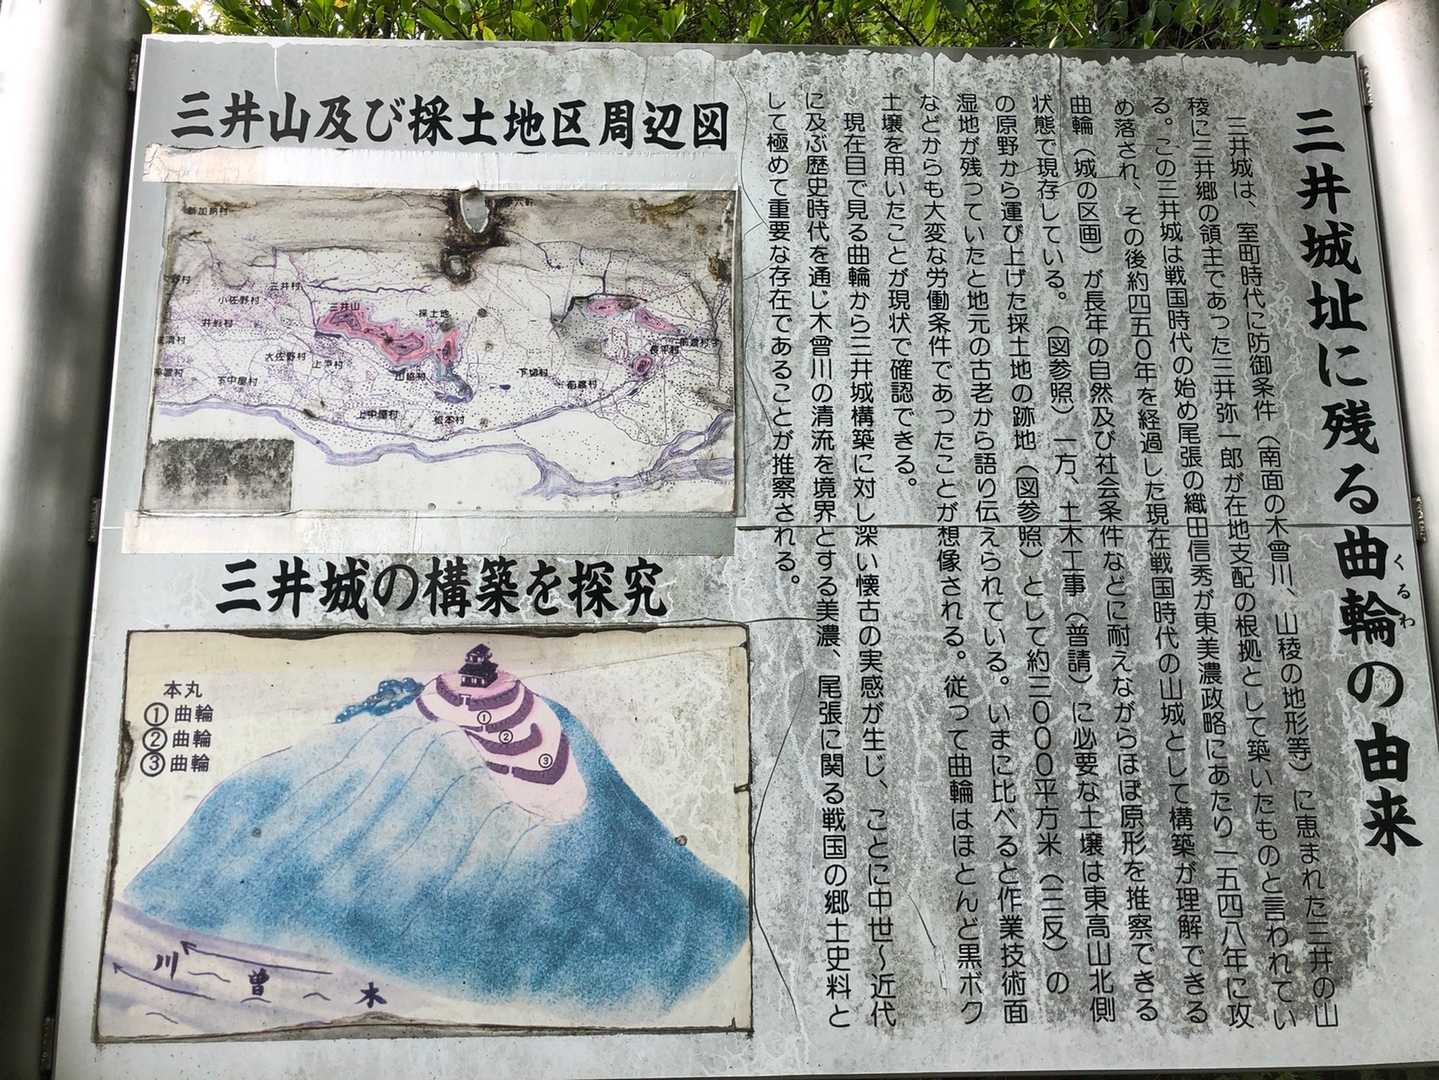 三井城址に残る曲輪の由来
くるわ
三井城は、室町時代に防御条件（南面の木曾川、山稜の地形等）に恵まれた三井の山
稜に三井郷の領主であった三井弥一郎が在地支配の根拠として築いたものと言われてい
る。この三井城は戦国時代の始め尾張の織田信秀が東美濃政略にあたり一五四八年に攻
め落され、その後約四五０年を経過した現在戦国時代の山城として構築が理解できる
曲輪（城の区画）が長年の自然及び社会条件などに耐えながらほぼ原形を推察できる
状態で現存している。（図参照）一方、土木工事（普請）に必要な土壌は東高山北側
の原野から運び上げた採土地の跡地（図参照）として約三０００平方米（三反）の
湿地が残っていたと地元の古老から語り伝えられている。いまに比べると作業技術面
などからも大変な労働条件であったことが想像される。従って曲輪はほとんど黒ボク
土壌を用いたことが現状で確認できる。
現在目で見る曲輪から三井城構築に対し深い懐古の実感が生じ、ことに中世〜近代
に及ぶ歴史時代を通じ木曾川の清流を境界とする美濃、尾張に関る戦国の郷土史料と
して極めて重要な存在であることが推察される。
三井山及び採土地区周辺図
新加納村
三井村
小佐野村
三井山
採土地
井形村
大佐野村
上戸村
長平村
下中屋村
山脇村
下切村
上中屋村
松本村
三井城の構築を探究
本丸
①曲輪
②曲輪
③曲輪
①
②
③
木曽川